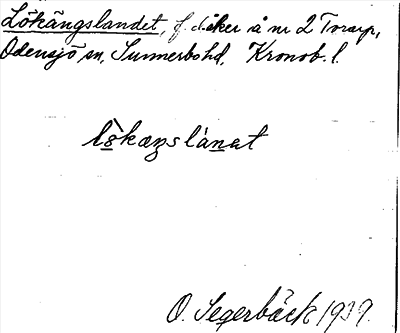 Lökängslandet, f. d. åker å nr 2 Torarp,
Odensjö sn, Sunnerbo hd, Kronob. l.
lökæŋslánat
O. Segerbäck 1939.